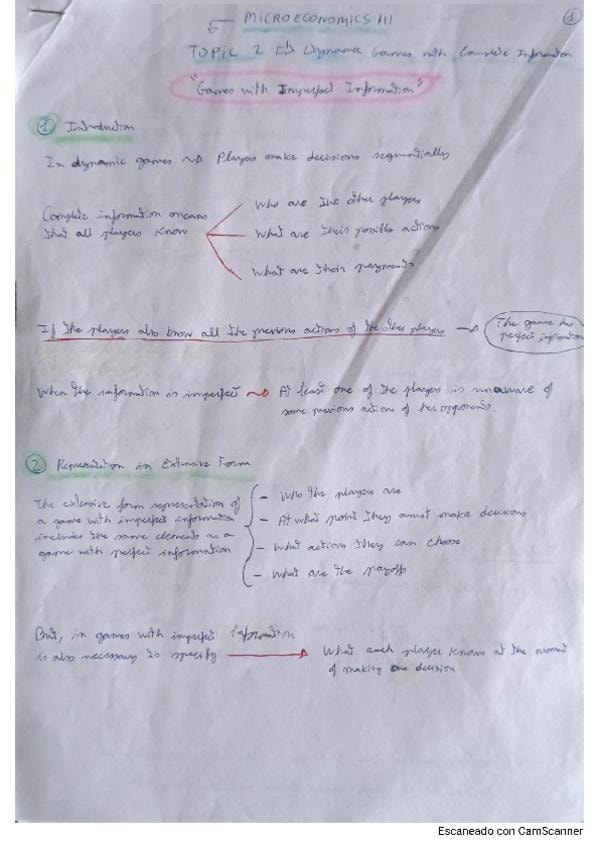 MICROECONOMICS III
1
TOPIC 2 ⇨ Dynamic Games with Complete Information
"Games with Imperfect Information"
1 Introduction
In dynamic games → Players make decisions sequentially
Complete information means
that all players know
Who are the other players
What are their possible actions
What are their payments
If the players also know all the previous actions of the other players →
The game has
perfect information
When the information is imperfect → At least one of the players is unaware of
some previous actions of her opponents.
2 Representation in Extensive Form
The extensive form representation of
a game with imperfect information
includes the same elements as a
game with perfect information
- Who the players are
- At what point they must make decisions
- What actions they can choose
- What are the payoffs
But, in games with imperfect information
is also necessary to specify →
What each player knows at the moment
of making decision
Escaneado con CamScanner